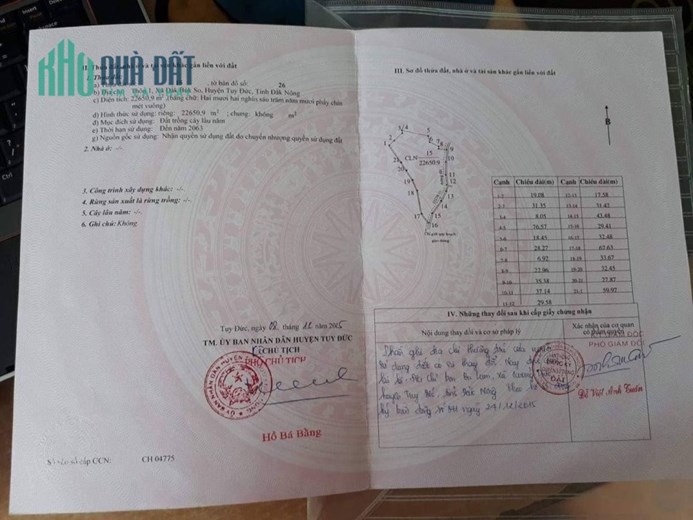 KHO NHÀ ĐẤT
II. Thửa đất, nhà ở và tài sản khác gắn liền với đất
1. Thửa đất:
, tờ bản đồ số: 26
b) Địa chỉ: Thôn 1, Xã Đắk Búk So, Huyện Tuy Đức, Tỉnh Đắk Nông
c) Diện tích: 22650,9 m² (bằng chữ: Hai mươi hai nghìn sáu trăm năm mươi phẩy chín mét vuông)
d) Hình thức sử dụng: riêng: 22650,9 m²; chung: không m²
đ) Mục đích sử dụng: Đất trồng cây lâu năm
e) Thời hạn sử dụng: Đến năm 2063
g) Nguồn gốc sử dụng: Nhận quyền sử dụng đất do chuyển nhượng quyền sử dụng đất
2. Nhà ở: -/-
3. Công trình xây dựng khác: -/-
4. Rừng sản xuất là rừng trồng: -/-
5. Cây lâu năm: -/-
6. Ghi chú: Không
Tuy Đức, ngày 02 tháng 11 năm 2015
TM. ỦY BAN NHÂN DÂN HUYỆN TUY ĐỨC
CHỦ TỊCH
PHÓ CHỦ TỊCH
Hồ Bá Bằng
Số vào sổ cấp GCN: CH 04775
III. Sơ đồ thửa đất, nhà ở và tài sản khác gắn liền với đất
B
CLN 15
22650,9
Cạnh Chiều dài(m) Cạnh Chiều dài(m)
1-2 19.08 12-13 17.58
2-3 31.33 13-14 31.42
3-4 8.05 14-15 43.48
4-5 76.57 15-16 29.41
5-6 18.45 16-17 32.48
6-7 28.27 17-18 67.63
7-8 6.92 18-19 31.67
8-9 22.96 19-20 32.45
9-10 35.38 20-21 27.87
10-11 37.14 21-1 59.92
11-12 29.58
IV. Những thay đổi sau khi cấp giấy chứng nhận
Nội dung thay đổi và cơ sở pháp lý
Xác nhận của cơ quan có thẩm quyền
PHÓ GIÁM ĐỐC
huyện Tuy Đức, tỉnh Đắk Nông. Theo hồ sơ
ngày 24/12/2015
Đỗ Viết Anh Tuấn